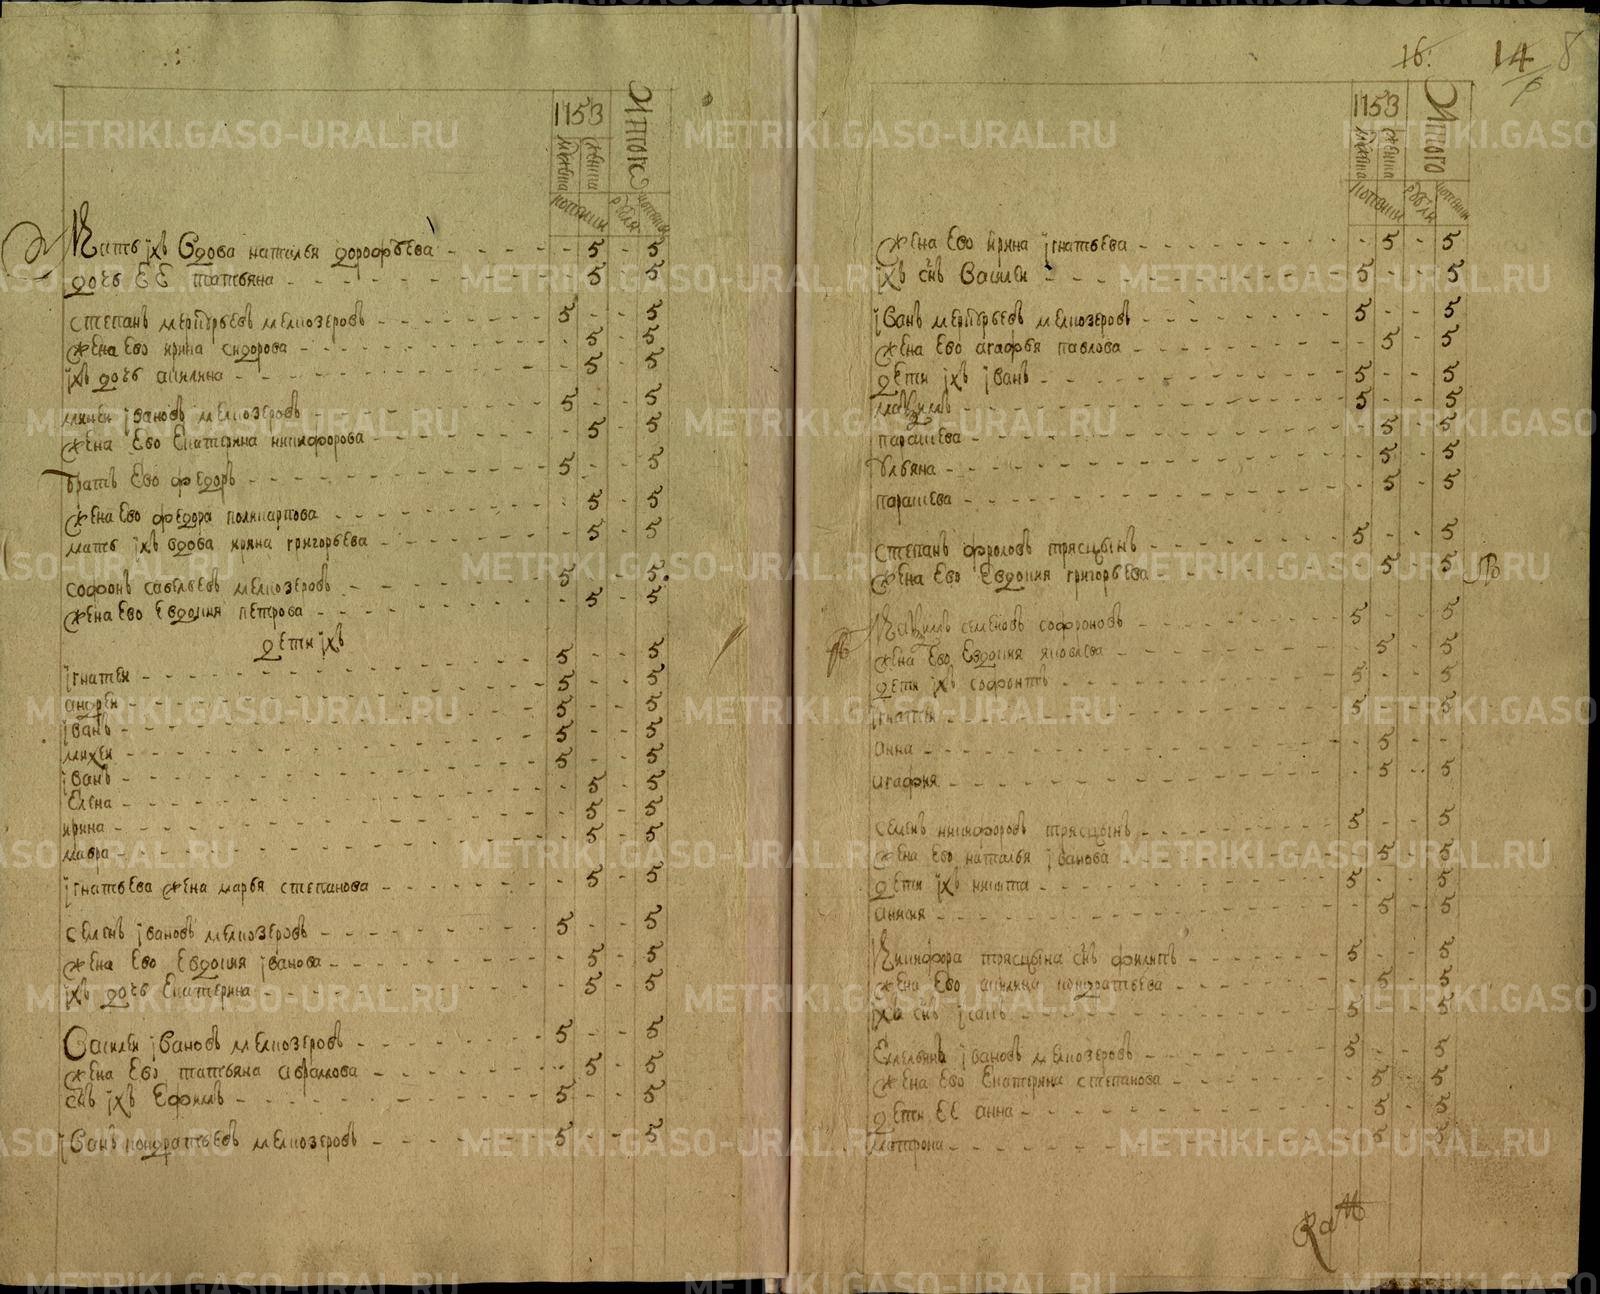 16: 14 8
1753
Итого
мужеска
женска
копѣики
рубли
копѣики
Мать iхъ вдова наталья дорофѣева - 5 - 5
дочь ЕЕ татьяна - 5 - 5
степанъ меркурьевъ мелкозеровъ - 5 - - 5
жена Ево ирина сидорова - 5 - 5
iхъ дочь акилина - 5 - 5
михеи iвановъ мелкозеровъ - 5 - - 5
жена Ево Екатерина никифорова - 5 - 5
братъ Ево федоръ - 5 - - 5
жена Ево федора поликарпова - 5 - 5
мать iхъ вдова ирина григорьева - 5 - 5
софонъ савельевъ мелкозеровъ - 5 - - 5
жена Ево Евдокия петрова - 5 - 5
дети iхъ
iгнатеи - 5 - - 5
андреи - 5 - - 5
iванъ - 5 - - 5
михеи - 5 - - 5
iванъ - 5 - - 5
Елена - 5 - 5
ирина - 5 - 5
мавра - 5 - 5
iгнатьева жена марья степанова - 5 - 5
семенъ iвановъ мелкозеровъ - 5 - - 5
жена Ево Евдокия iванова - 5 - 5
iхъ дочь Екатерина - 5 - 5
Василеи iвановъ мелкозеровъ - 5 - - 5
жена Ево татьяна авраамова - 5 - 5
снъ iхъ Ефимъ - 5 - - 5
iванъ кондратьевъ мелкозеровъ - 5 - - 5
1753
Итого
мужеска
женска
копѣики
рубли
копѣики
жена Ево ирина iгнатьева - 5 - 5
iхъ снъ Василеи - 5 - - 5
iванъ меркурьевъ мелкозеровъ - 5 - - 5
жена Ево агафья павлова - 5 - 5
дети iхъ iванъ - 5 - - 5
маѯимъ - 5 - - 5
парасковья - 5 - 5
ульяна - 5 - 5
парасковья - 5 - 5
степанъ фроловъ трясцынъ - 5 - - 5
жена Ево Евдокия григорьева - 5 - 5
Маѯимъ семеновъ софроновъ - 5 - - 5
жена Ево Евдокия яковлева - 5 - 5
дети iхъ софонтеи - 5 - - 5
iгнатеи - 5 - - 5
анна - 5 - -
агафия - 5 - 5
семенъ никифоровъ трясцынъ - 5 - - 5
жена Ево наталья iванова - 5 - 5
дети iхъ никита - 5 - - 5
анисия - 5 - 5
Никифора трясцына снъ филипъ - 5 - - 5
жена Ево акилина кондратьева - 5 - 5
iхъ снъ iсакъ - 5 - - 5
Емельянъ iвановъ мелкозеровъ - 5 - - 5
жена Ево Екатерина степанова - 5 - 5
дети ЕЕ анна - 5 - 5
матрона - 5 - 5
METRIKI.GASO-URAL.RU